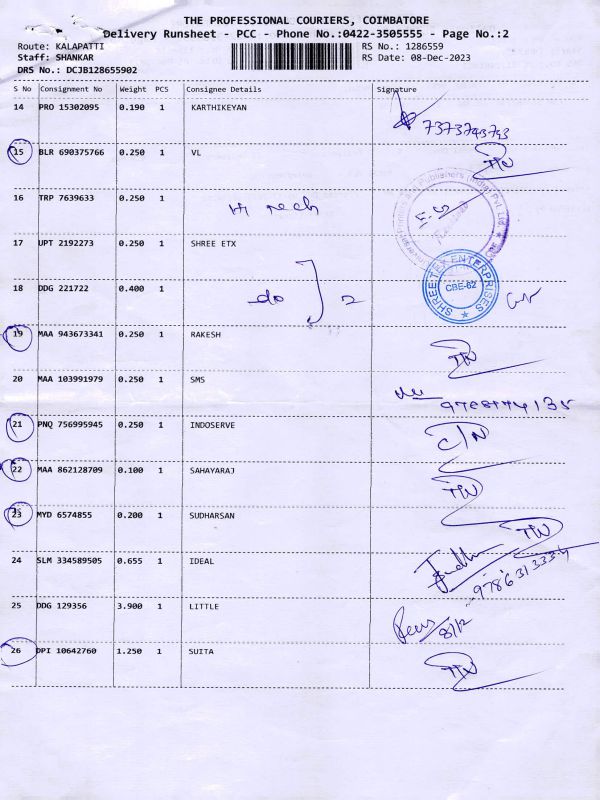 THE PROFESSIONAL COURIERS, COIMBATORE
Delivery Runsheet - PCC - Phone No.:0422-3505555 - Page No.:2
Route: KALAPATTI
RS No.: 1286559
Staff: SHANKAR
RS Date: 08-Dec-2023
DRS No.: DCJB128655902
S No Consignment No Weight PCS Consignee Details Signature
14 PRO 15302095 0.190 1 KARTHIKEYAN
7373793793
15 BLR 690375766 0.250 1 VL
16 TRP 7639633 0.250 1 Hi Tech
17 UPT 2192273 0.250 1 SHREE ETX
18 DDG 221722 0.400 1 do } 2
SHREE TEX ENTERPRISES
CBE-62
19 MAA 943673341 0.250 1 RAKESH
20 MAA 103991979 0.250 1 SMS
21 PNQ 756995945 0.250 1 INDOSERVE C/N
22 MAA 862128709 0.100 1 SAHAYARAJ
23 MYD 6574855 0.200 1 SUDHARSAN
24 SLM 334589505 0.655 1 IDEAL
25 DDG 129356 3.900 1 LITTLE 8/12
26 DPI 10642760 1.250 1 SUITA